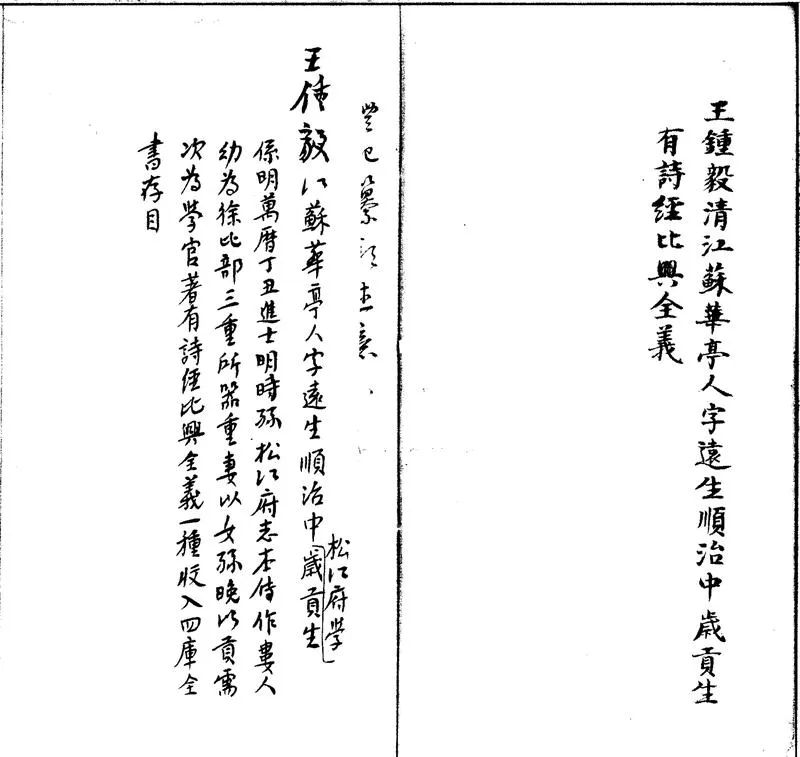 王鍾毅清江蘇華亭人字遠生順治中歲貢生
有詩經比興全義
王鍾毅江蘇華亭人字遠生順治中松江府學歲貢生
係明萬曆丁丑進士明時孫松江府志本傳作婁人
幼為徐比部三重所器重妻以女孫晚以貢需
次為學官著有詩經比興全義一種收入四庫全
書存目